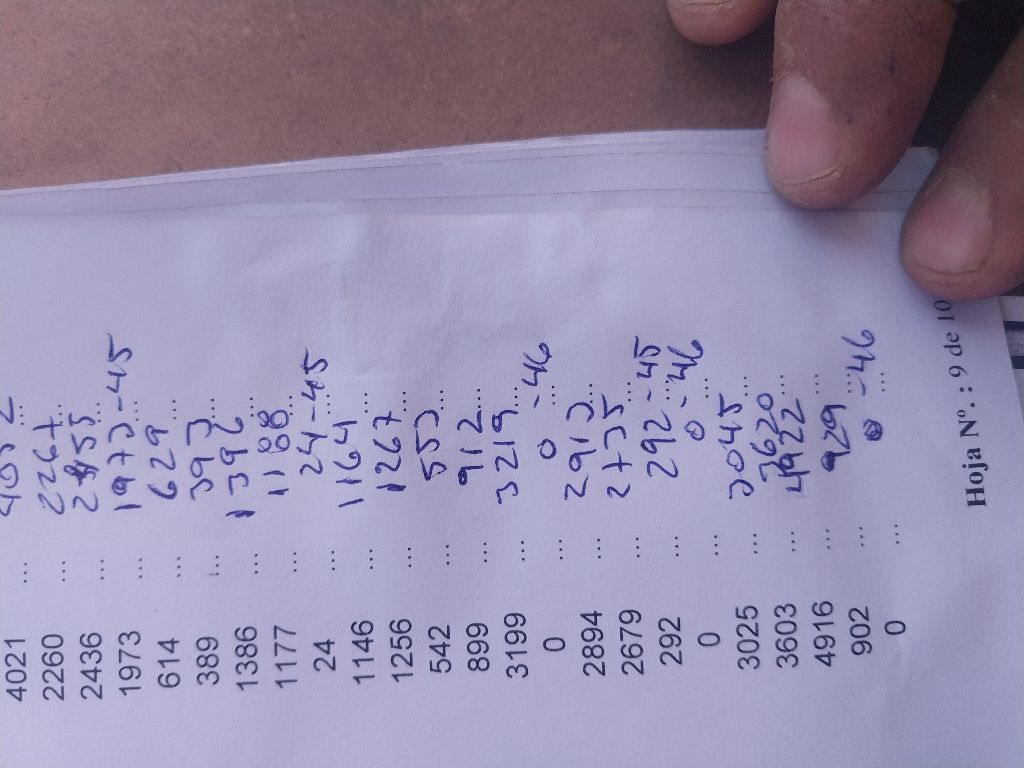 4021 ... ...
2260 ... 2267 ...
2436 ... 2455 ...
1973 ... 1973 -45
614 ... 629 ...
389 ... 393 ...
1386 ... 1396 ...
1177 ... 1188 ...
24 ... 24 -45
1146 ... 1164 ...
1256 ... 1267 ...
542 ... 553 ...
899 ... 912 ...
3199 ... 3219 ...
0 ... 0 -46 ...
2894 ... 2913 ...
2679 ... 2735 ...
292 ... 292 -45 ...
0 ... 0 -46 ...
3025 ... 3045 ...
3603 ... 3620 ...
4916 ... 4922 ...
902 ... 929 ...
0 ... 0 -46 ...
Hoja Nº. : 9 de 10